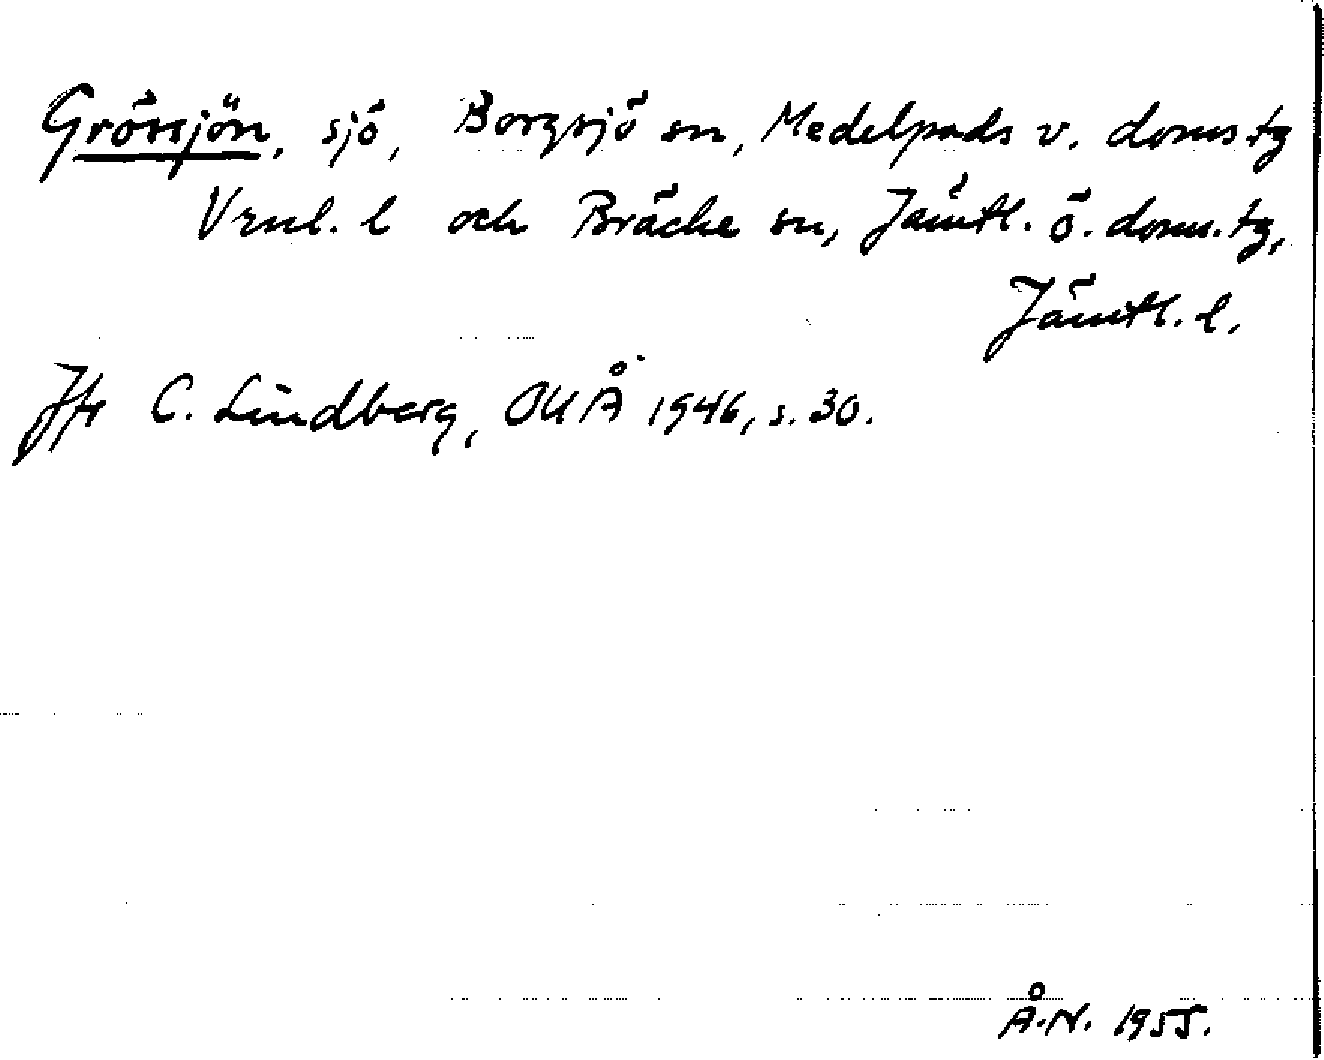 Grössjön, sjö, Borgsjö sn, Medelpads v. doms.tg
Vrnl. l och Bräcke sn, Jämtl. ö. doms.tg,
Jämtl. l.
Jfr C. Lindberg, OUÅ 1946, s. 30.
Å.N. 1955.